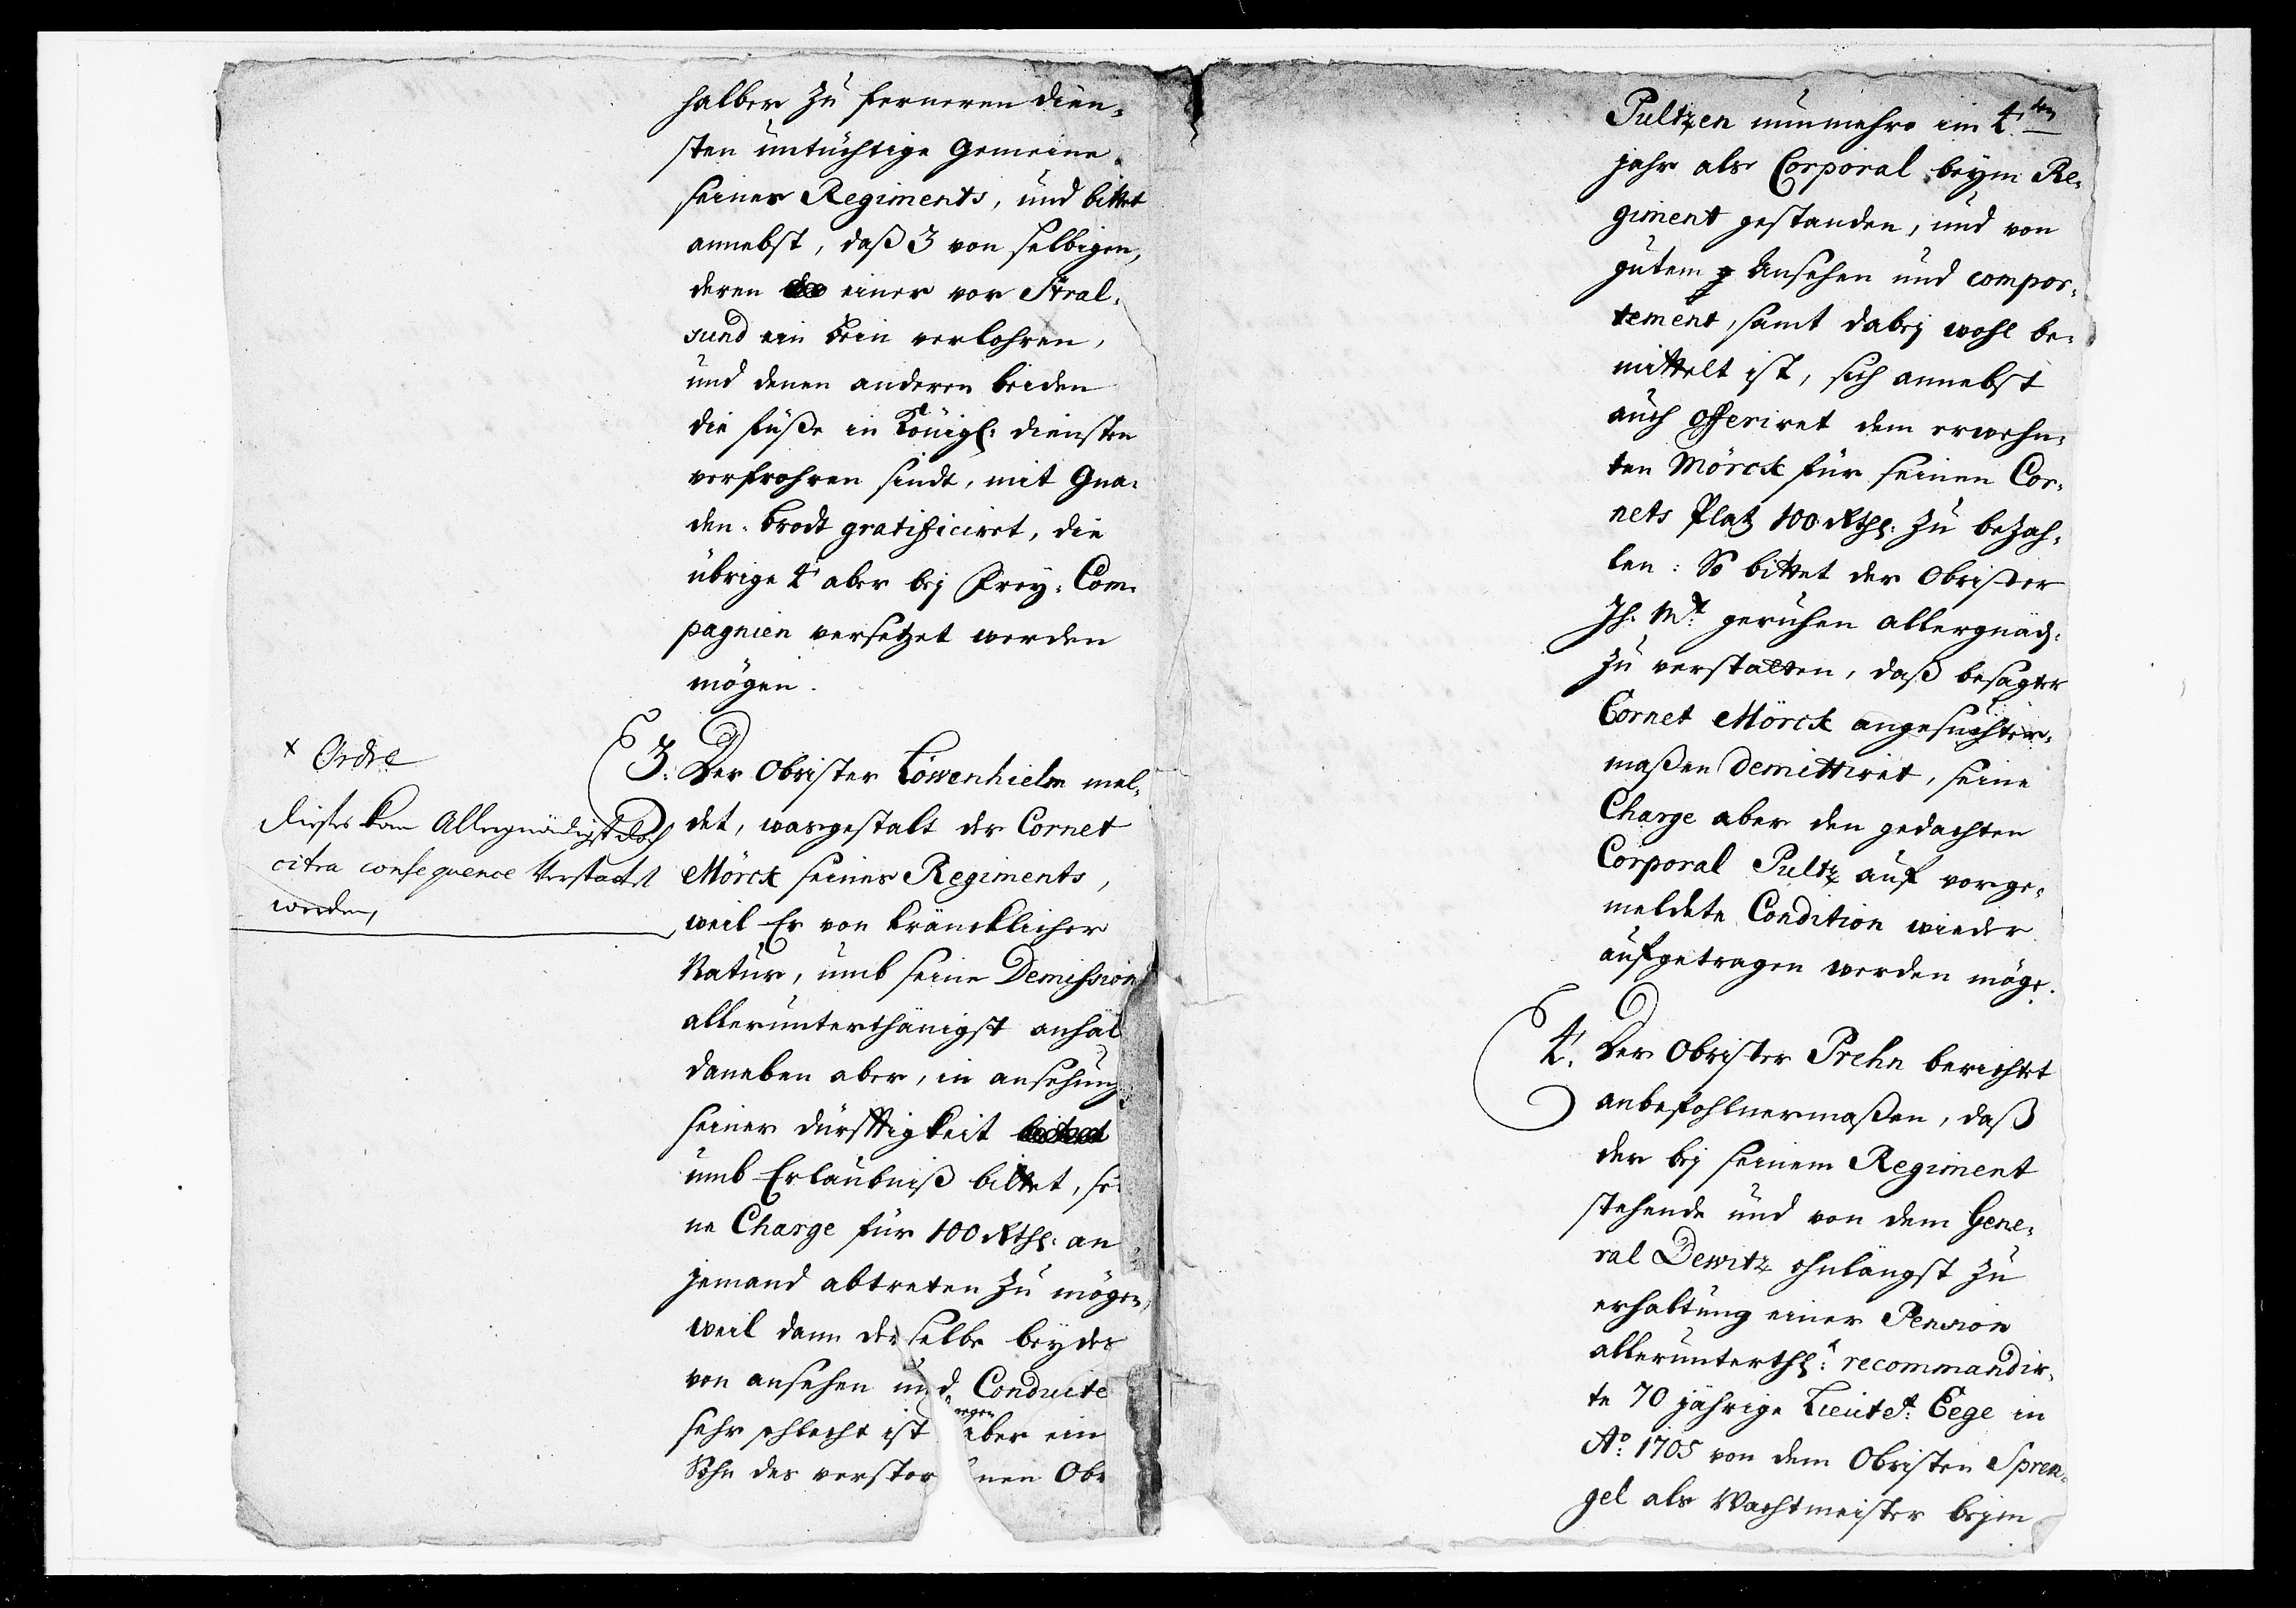 halber zu ferneren dien-
sten untüchtige Gemeine
seines Regiments, und bittet
annebst, daß 3 von selbigen,
deren einer vor Stral-
sund ein bein verlohren,
und denen anderen beiden
die füße in Königl: diensten
verfrohren sindt, mit Gna-
den-brodt gratificiret, die
übrige 4 aber bej Frey-Com-
pagnien versetzet werden
mögen.
3. Der Obrister Löwenhielm mel-
det, wasgestalt der Cornet
Mörck seines Regiments,
weil Er von kräncklicher
Natur, umb seine Demission
allerunterthänigst anhäl
daneben aber, in ansehung
seiner dürfftigkeit
umb Erlaubniß bittet, sei
ne Charge für 100 Rthl: an
jemand abtreten zu mögen,
weil dann derselbe beydes
von ansehen und Conduite
sehr schlecht ist gegen aber ein
Sohn des verstor nen Obr
+ Ordre
dieses kan Allergnädigst doch
citra consequence Verstattet
werden,
Pultzen nunmehro im 4ten
jahr als Corporal beym Re-
giment gestanden, und von
gutem Ansehen und compor-
tement, samt dabej wohl be-
mittelt ist, sich annebst
auch offeriret dem erwehn-
ten Mörck für seinen Cor-
nets Platz 100 Rthl: zu bezah-
len: So bittet der Obrister
Ih. Mt: geruhen allergnäd:
zu verstatten, daß besagter
Cornet Mörck angesuchter-
maßen demittiret, seine
Charge aber den gedachten
Corporal Pultz auf vorge-
meldete Condition wieder
aufgetragen werden möge.
4. Der Obrister Prehn berichtet
anbefohlnermaßen, daß
der bej seinem Regiment
stehende und von dem Gene-
ral Dewitz ohnlängst zu
erhaltung einer Pension
allerunterthl: recommandir-
te 70 jährige Lieutet: Eege in
Ao: 1705 von dem Obristen Spren-
gel als Wachtmeister bejm